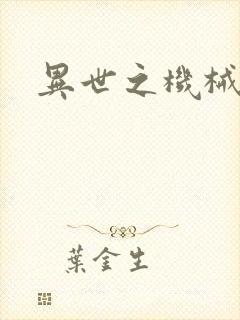 異世之機械
葉金生